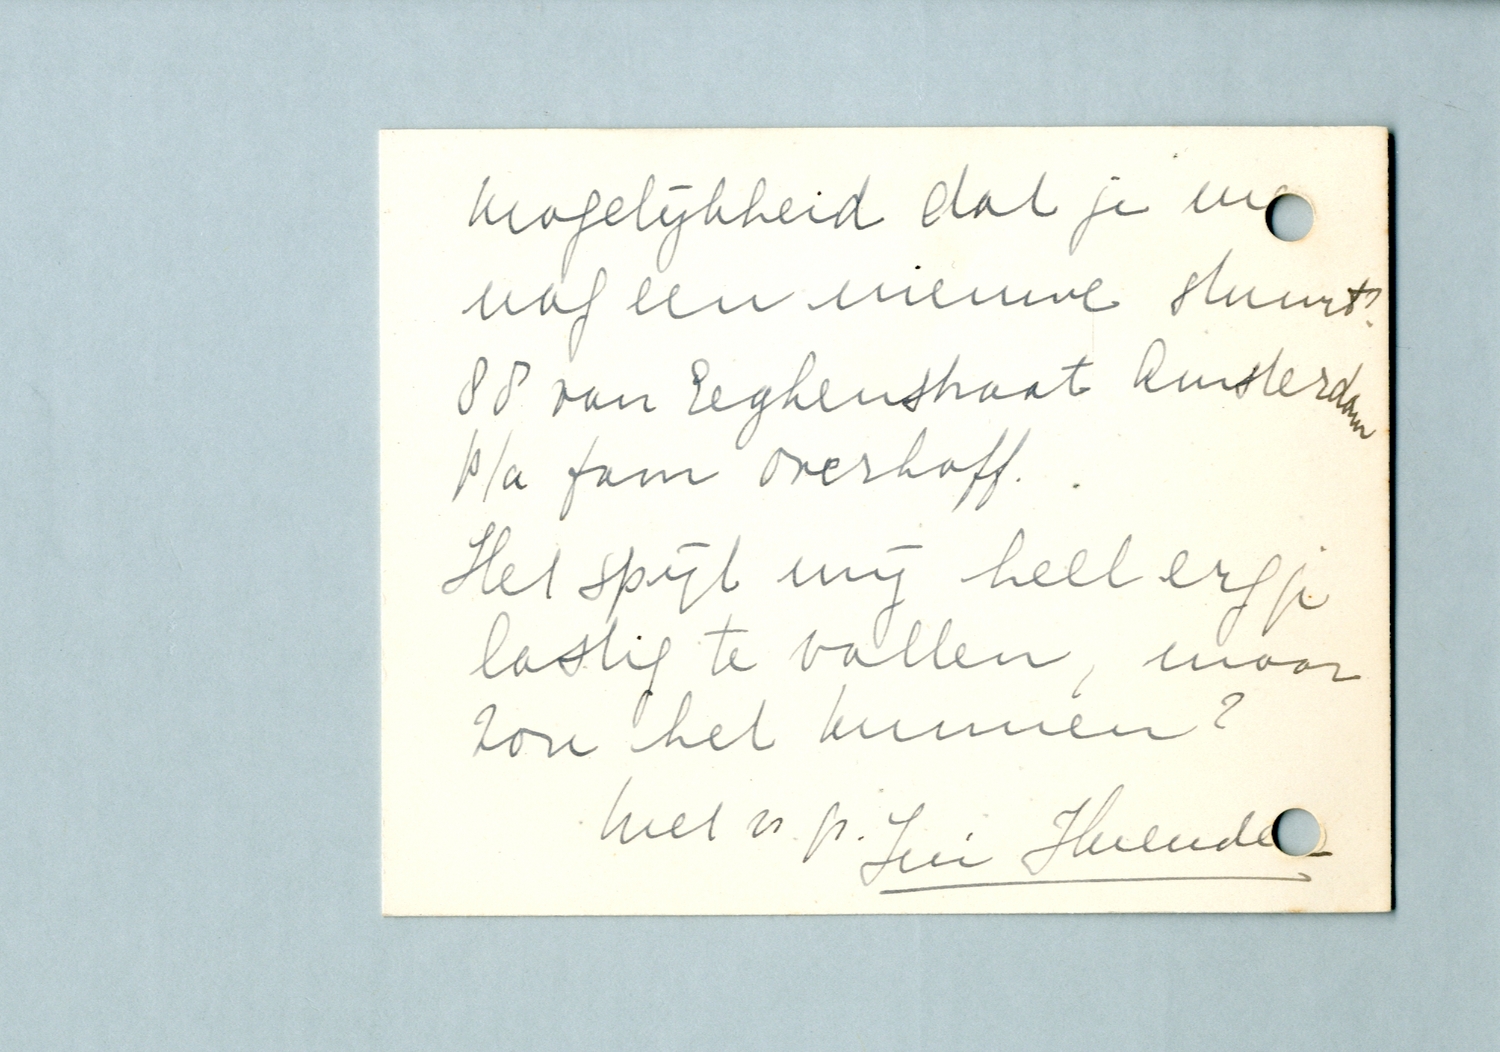 mogelijkheid dat je me
nog een nieuwe stuurt?
88 van Eeghenstraat Amsterdam
p/a fam Overhoff.
Het spijt mij heel erg je
lastig te vallen, maar
zou het kunnen?
Met v. gr.